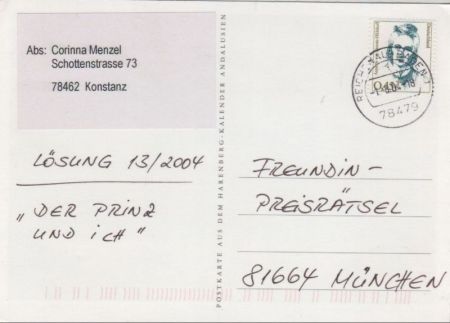 Abs: Corinna Menzel
Schottenstrasse 73
78462 Konstanz
LÖSUNG 13/2004
„DER PRINZ
UND ICH"
POSTKARTE AUS DEM HARENBERG-KALENDER ANDALUSIEN
Deutschland
78479
FREUNDIN-
PREISRÄTSEL
81664 MÜNCHEN